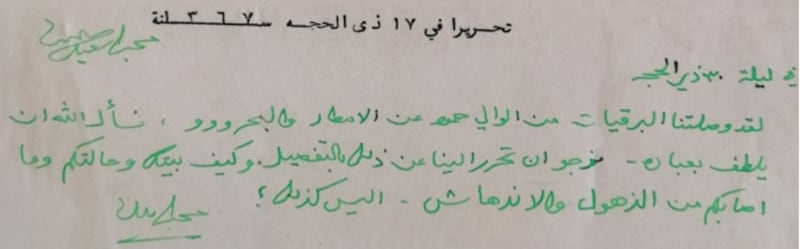 تحريرا في ١٧ ذى الحجه سنة ٣٦٧
في ليلة ٣٠ ذي الحجه
لقد وصلتنا البرقيات من الوالي حمد عن الامطار والبحر ووو ، نسأل الله ان
يلطف بعباده - نرجو ان تحرر الينا عن ذلك بالتفصيل وكيف بيتك وحالتكم وما
اصابكم من الذهول والاندهاش - اليس كذلك ؟